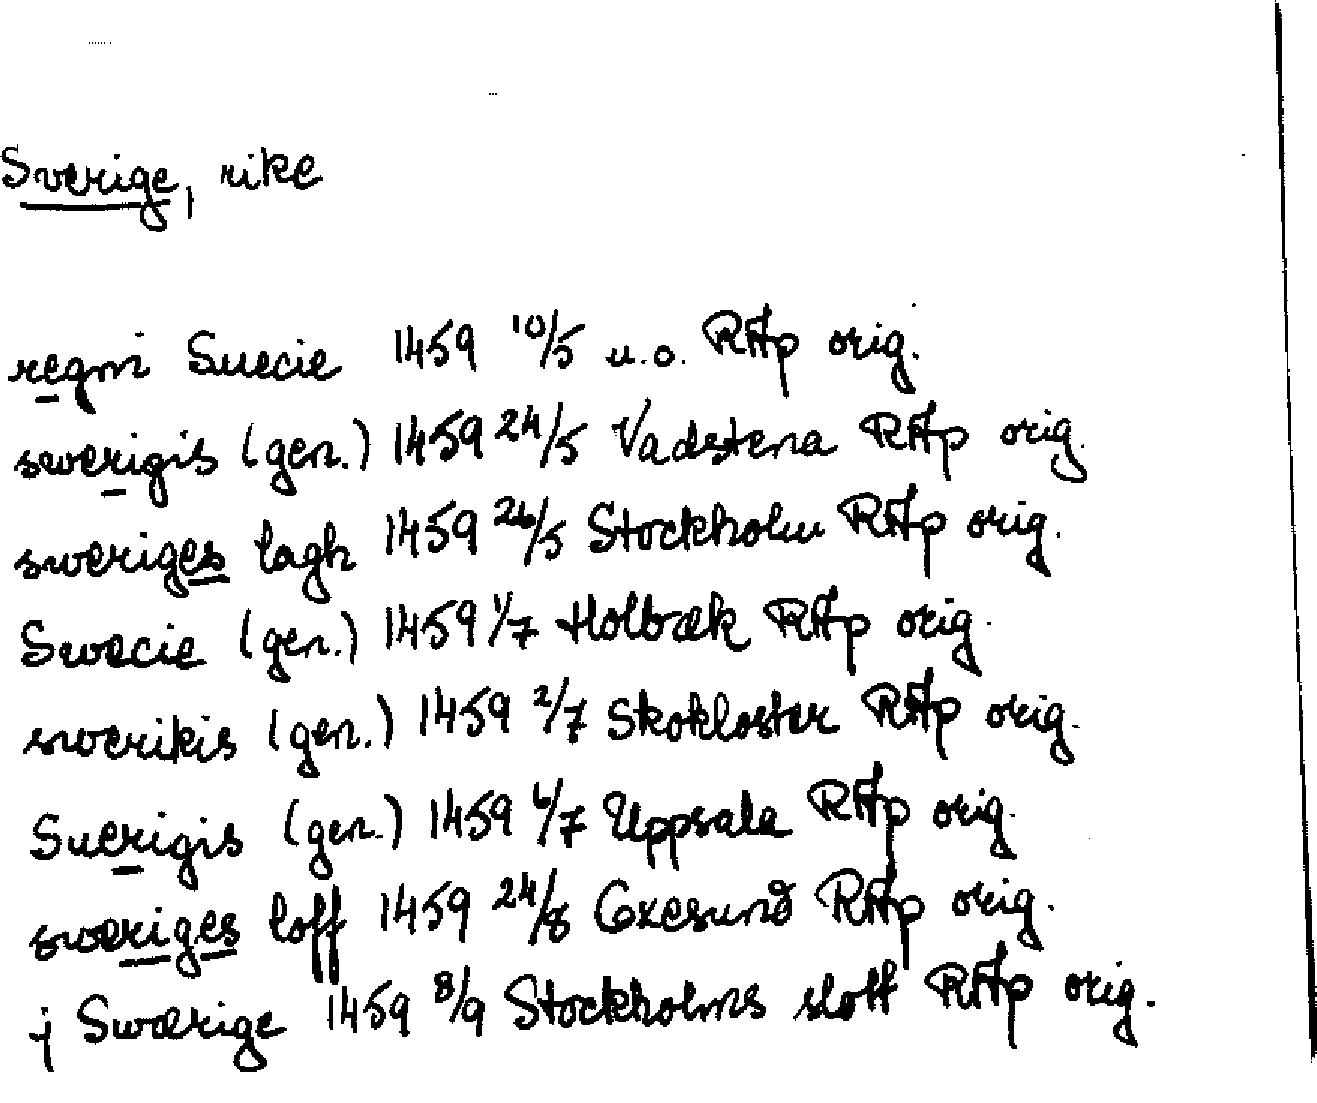 Sverige, rike
regni Suecie 1459 10/5 u.o. RAp orig.
swerigis (gen.) 1459 24/5 Vadstena RAp orig.
sweriges lagh 1459 26/5 Stockholm RAp orig.
Swecie (gen.) 1459 1/7 Holbæk RAp orig.
swerikis (gen.) 1459 2/7 Skokloster RAp orig.
Suerigis (gen.) 1459 6/7 Uppsala RAp orig.
sweriges loff 1459 24/8 Oxesund RAp orig.
j Swærige 1459 8/9 Stockholms slott RAp orig.